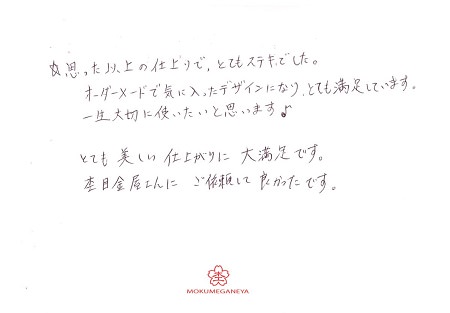 ☆思った以上の仕上りで、とてもステキでした。
オーダーメードで気に入ったデザインになり、とても満足しています。
一生大切に使いたいと思います♪
とても 美しい 仕上がりに 大満足です。
杢目金屋さんに ご依頼して 良かったです。
杢
MOKUMEGANEYA